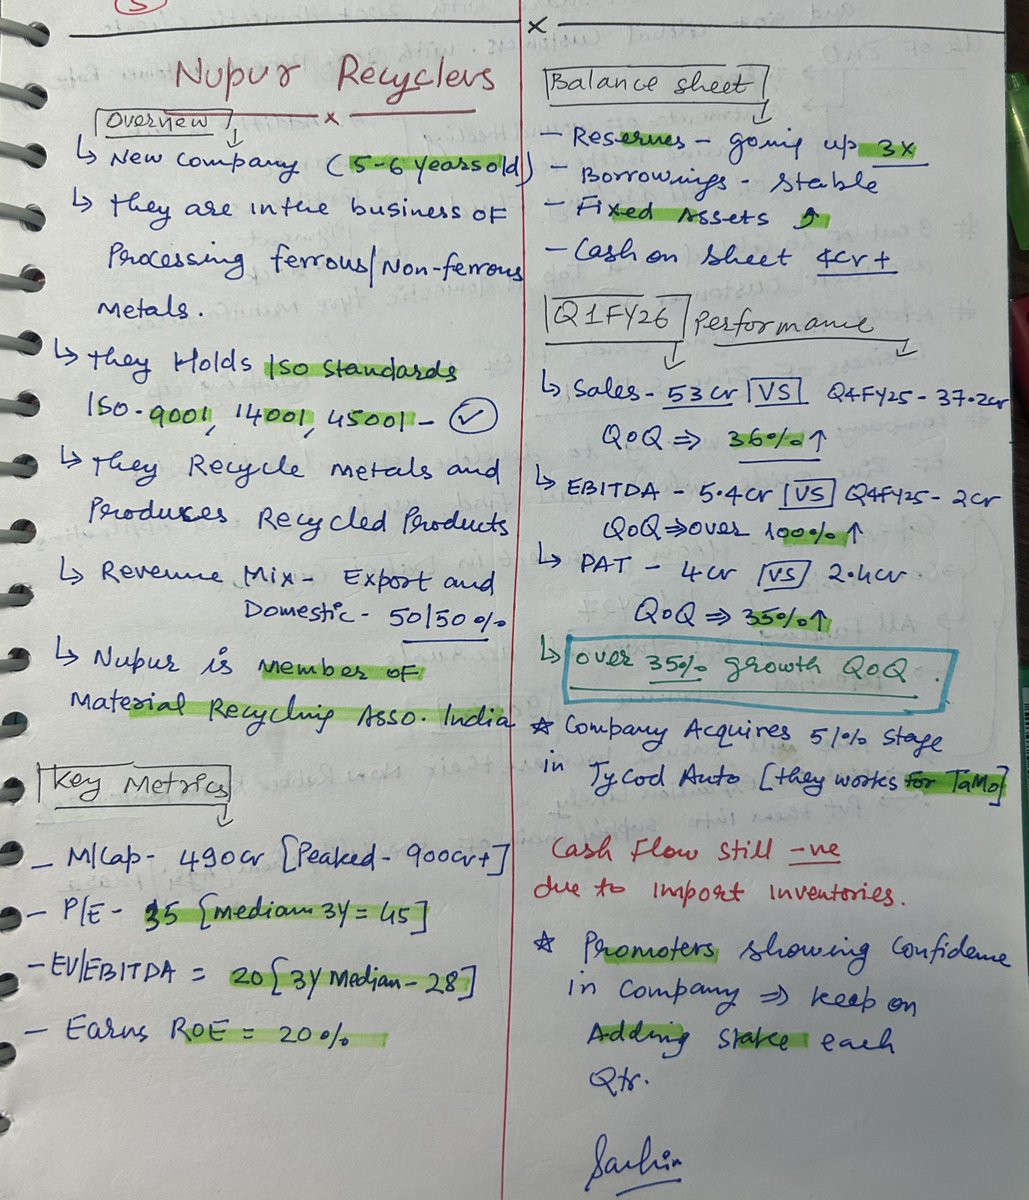 5
Nupur Recyclers
Overview
↳ New Company (5-6 years old)
↳ they are in the business of
Processing ferrous/Non-ferrous
metals.
↳ they Holds ISO Standards
ISO-9001, 14001, 45001 -
↳ they Recycle metals and
Produces Recycled Products
↳ Revenue Mix- Export and
Domestic - 50/50%
↳ Nupur is Member of
Material Recycling Asso. India
Key Metrics
- M/Cap- 490cr [Peaked - 900cr+]
- P/E- 35 [median 3Y = 45]
- EV/EBITDA = 20 [3Y Median - 28]
- Earns ROE = 20%
Balance sheet
- Reserves - going up 3x
- Borrowings - stable
- Fixed Assets ↑
- Cash on sheet 4cr+
Q1FY26 Performance
↳ Sales - 53cr VS Q4FY25 - 37.2cr
QoQ ⇒ 36% ↑
↳ EBITDA - 5.4cr VS Q4FY25 - 2cr
QoQ ⇒ over 100% ↑
↳ PAT - 4cr VS 2.4cr.
QoQ ⇒ 35% ↑
↳ over 35% growth QoQ.
* Company Acquires 51% stage
in Tycod Auto [they works for TaMo]
Cash Flow still -ve
due to import inventories.
* Promoters showing Confidence
in company ⇒ keep on
Adding stake each
Qtr.
Sachin